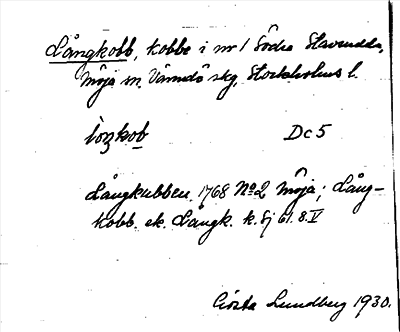 Långkobb, kobbe i nr 1 Södra Stavsudda,
Möja sn, Värmdö skg, Stockholms l.
lòŋkob Dc5
Långkubben 1768 No 2 Möja; Lång-
kobb. ek. Langk. k. Sj 61.8.V
Gösta Lundberg 1930.